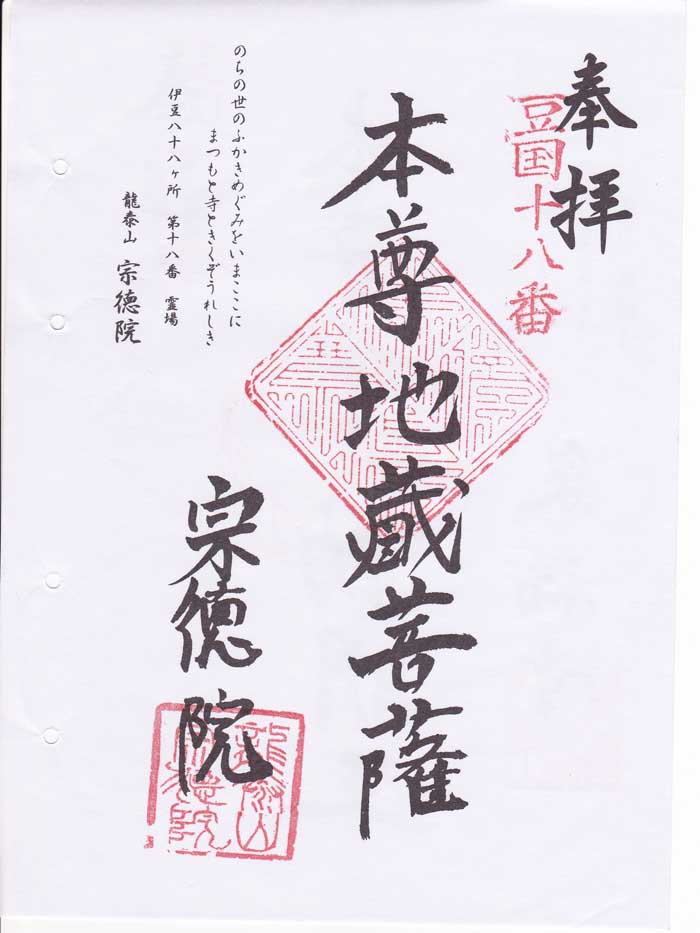 奉拝
豆国十八番
本尊地蔵菩薩
宗徳院
のちの世のふかきめぐみをいまここに
まつもと寺ときくぞうれしき
伊豆八十八ヶ所　第十八番　霊場
龍泰山　宗徳院
龍泰山
宗徳院